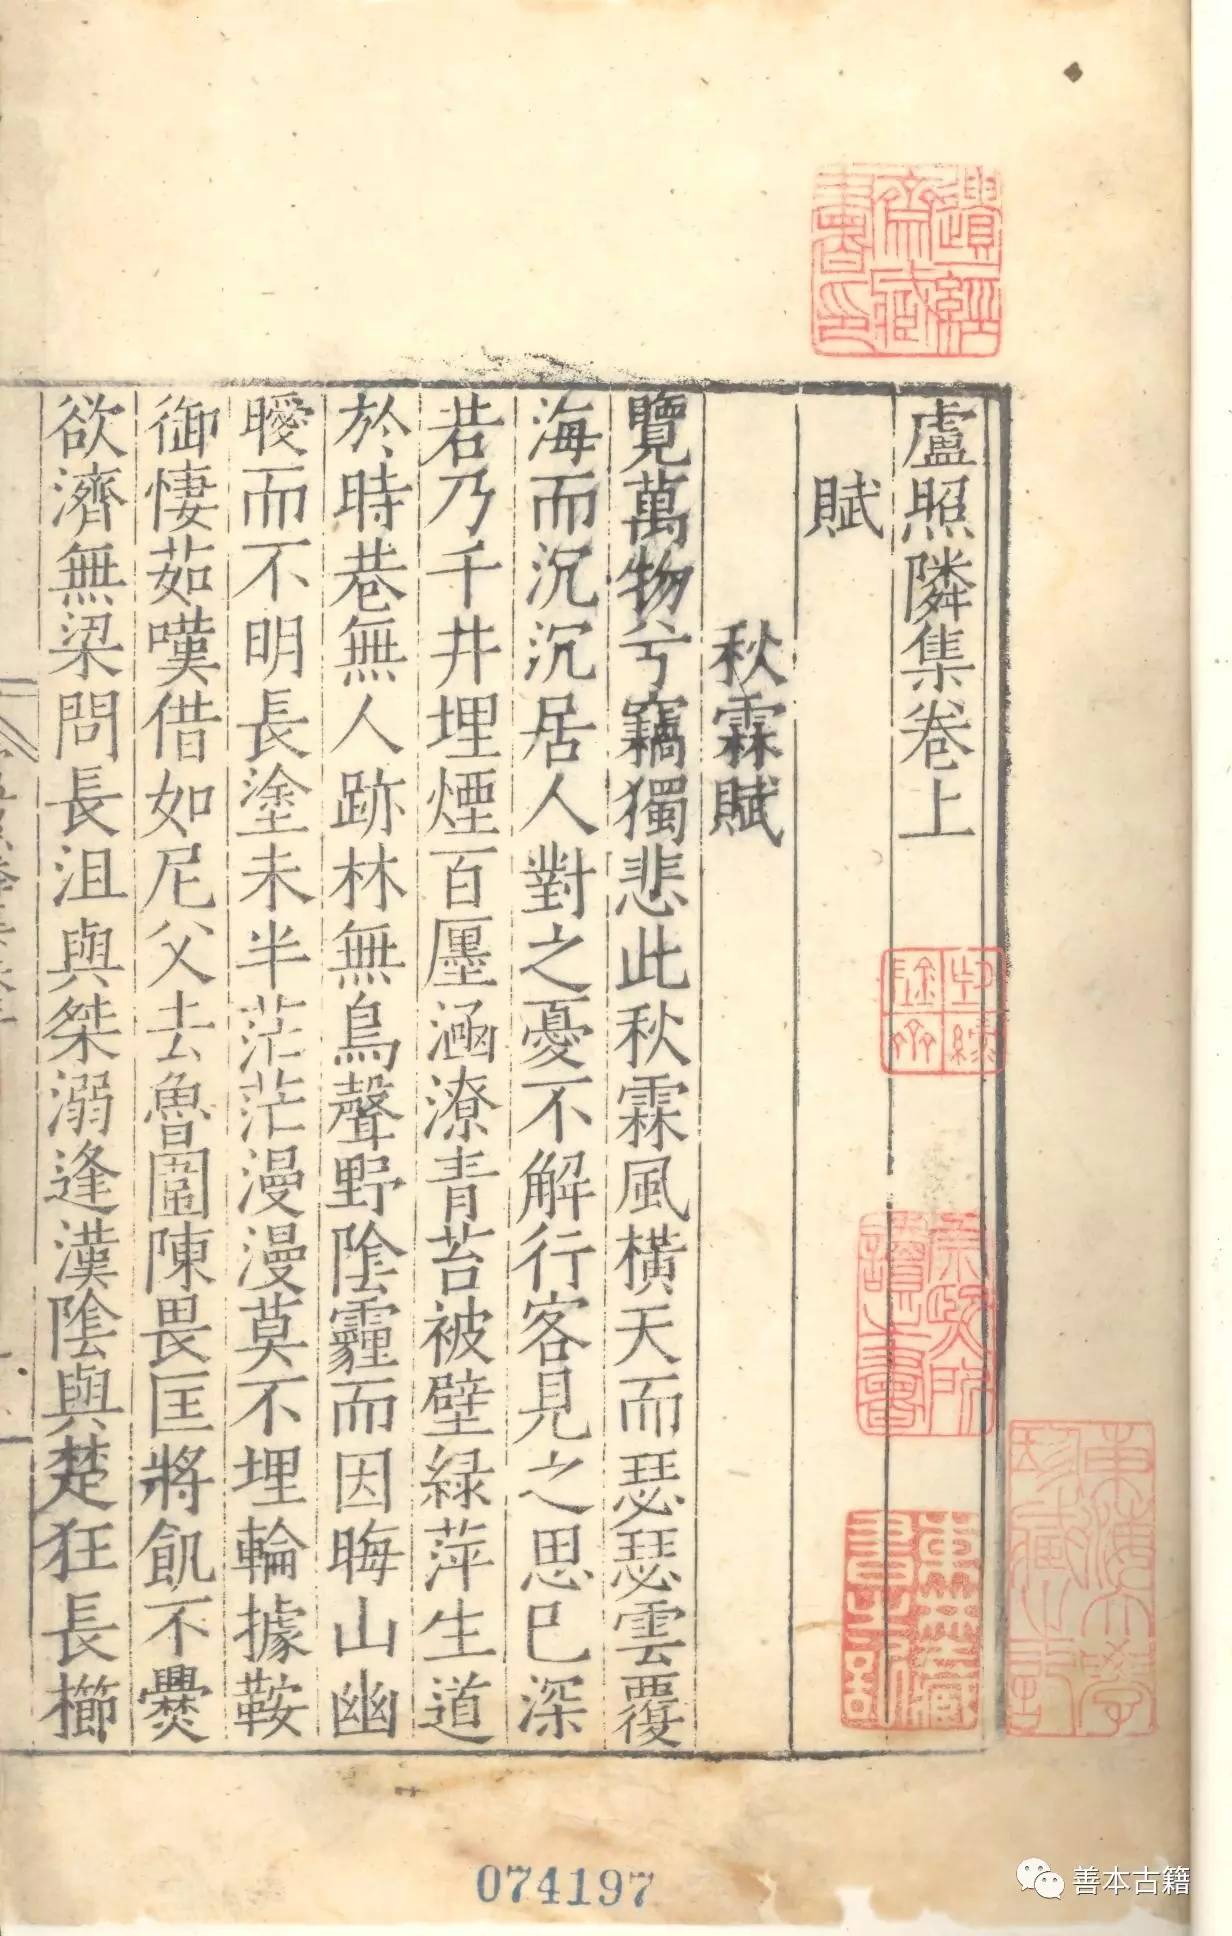 盧照隣集卷上
賦
秋霖賦
覽萬物兮竊獨悲此秋霖風横天而瑟瑟雲覆
海而沉沉居人對之憂不解行客見之思已深
若乃千井埋煙百廛涵潦青苔被壁緑萍生道
於時巷無人跡林無鳥聲野陰霾而因晦山幽
曖而不明長塗未半茫茫漫漫莫不埋輪據鞍
御悽茹嘆借如尼父去魯圍陳畏匡將飢不爨
欲濟無梁問長沮與桀溺逢漢陰與楚狂長櫛
遺經
齋藏
書印
074197
善本古籍